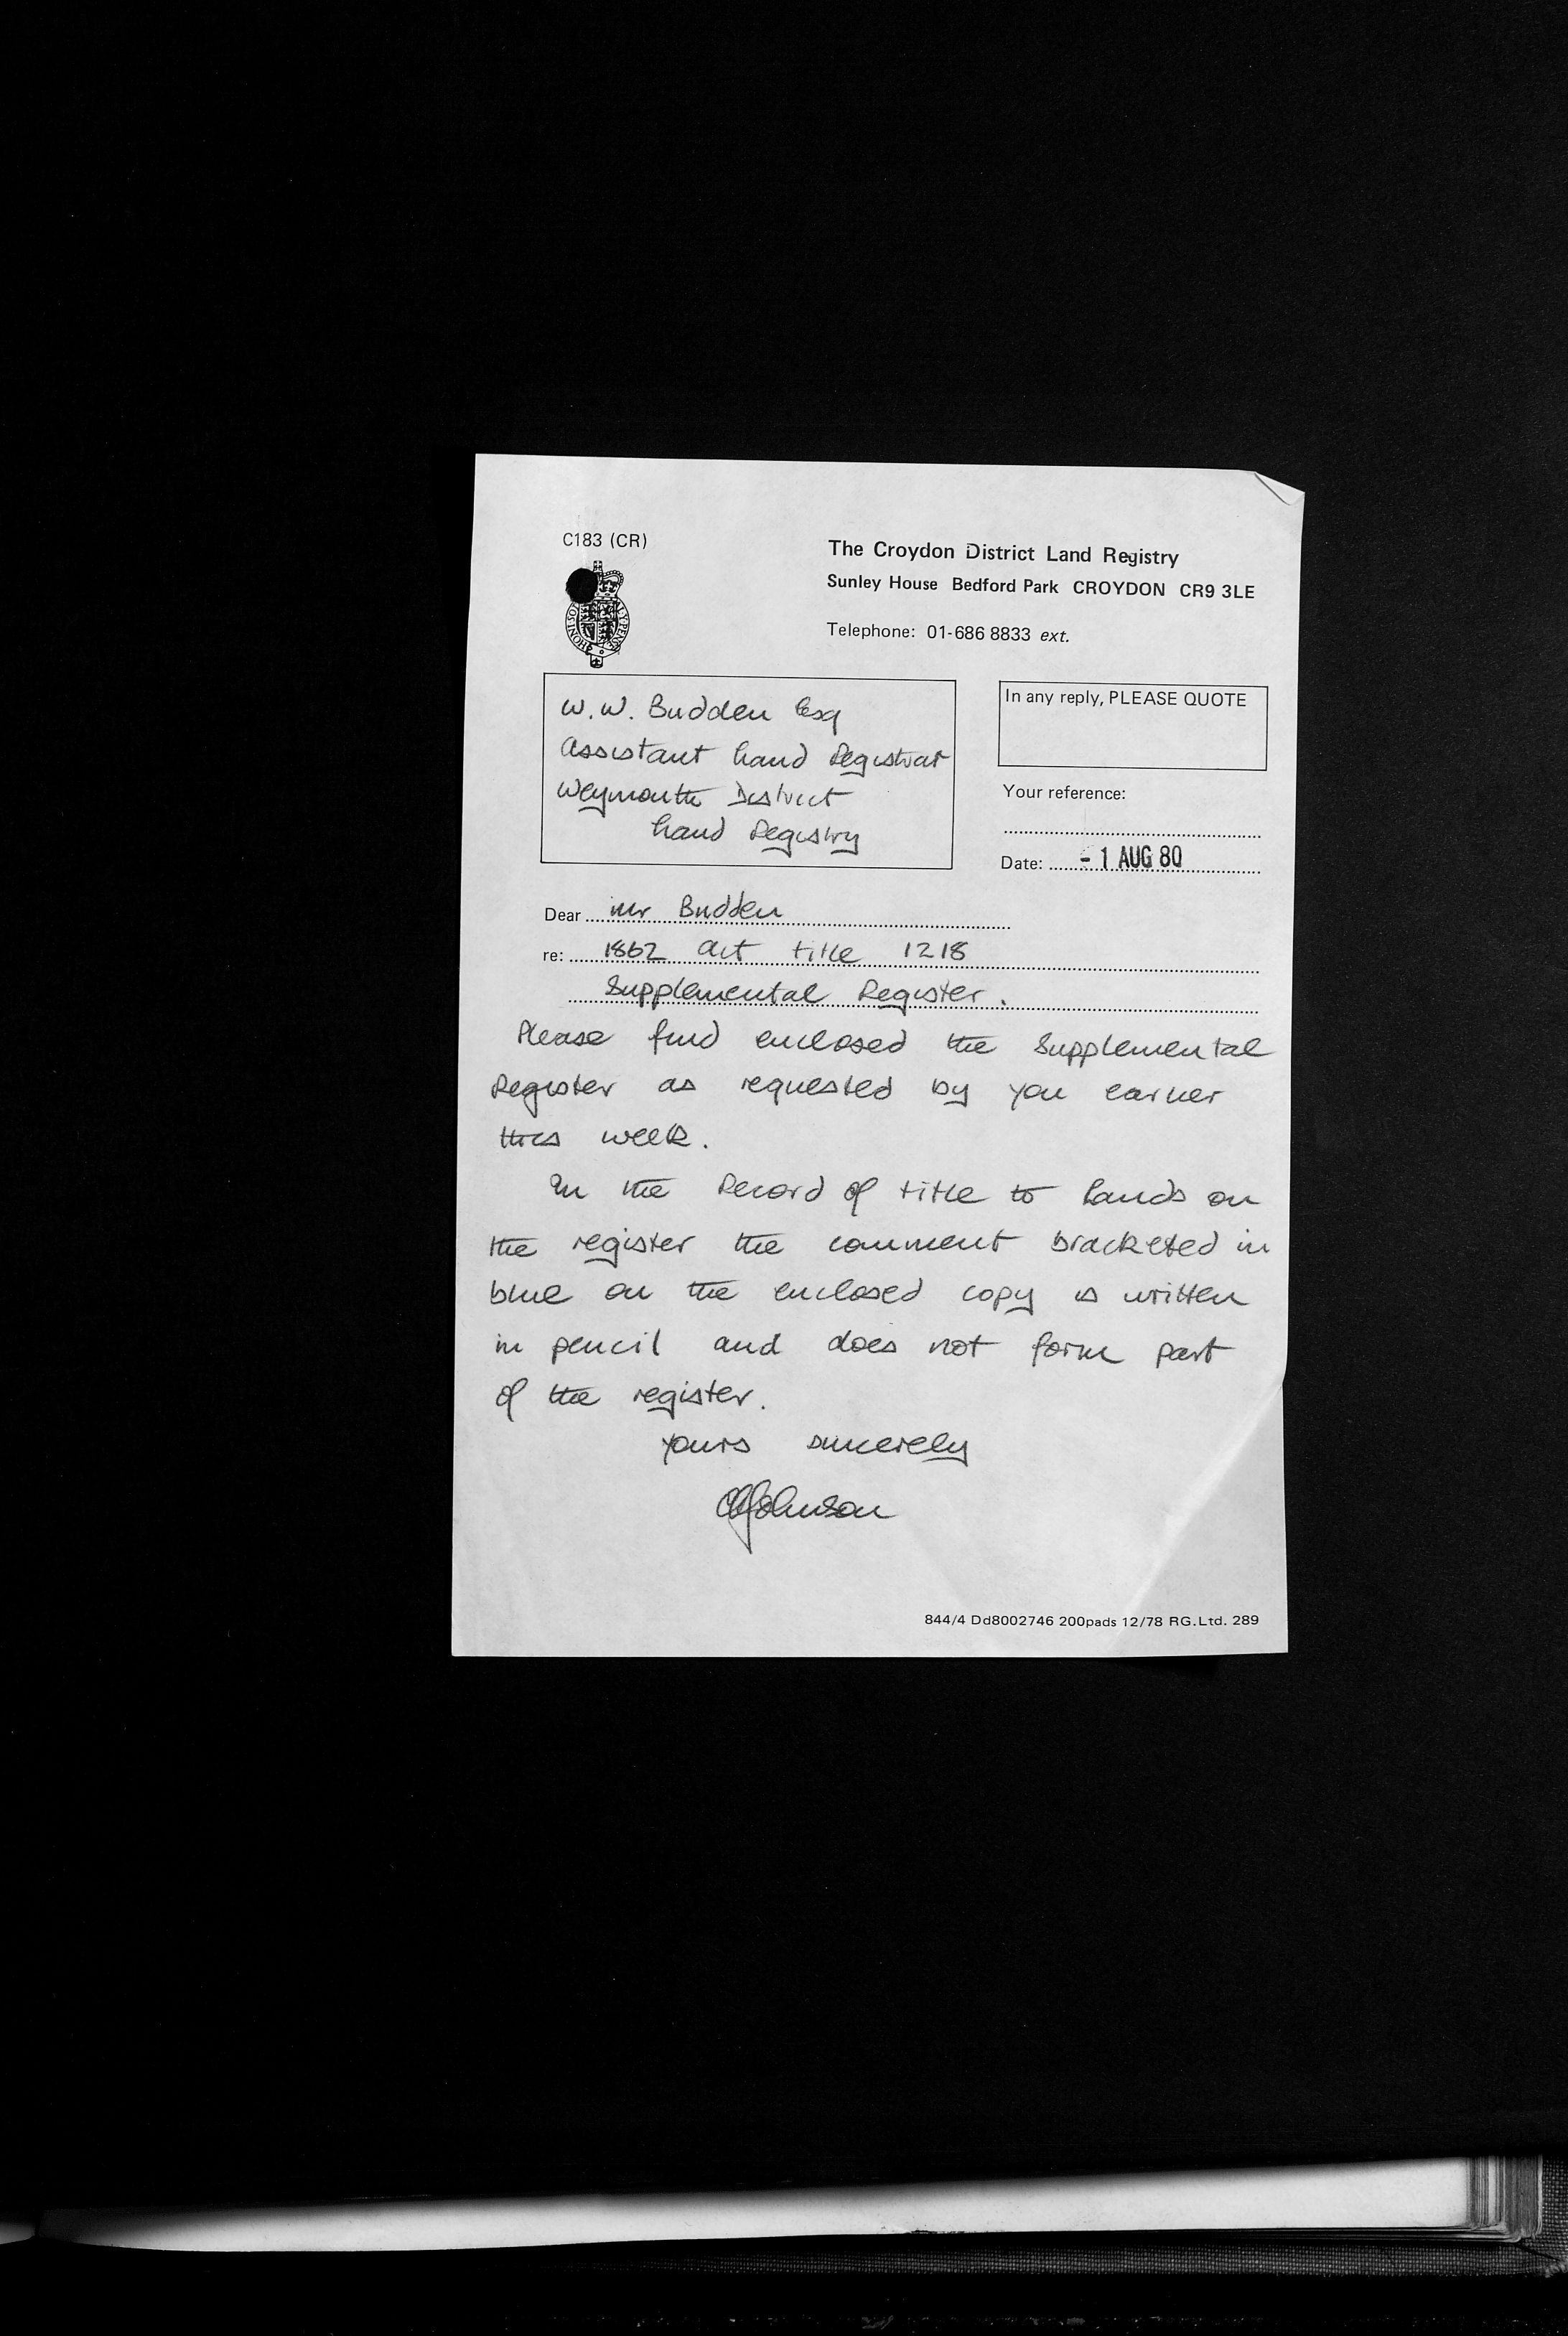 C183 (CR)
The Croydon District Land Registry
Sunley House Bedford Park CROYDON CR9 3LE
Telephone: 01-686 8833 ext.
W.W. Budden Esq
Assistant Land Registrar
Weymouth District
Land Registry
In any reply, PLEASE QUOTE
Your reference:
Date: - 1 AUG 80
Dear Mr Budden
re: 1862 Act title 1218
Supplemental Register.
Please find enclosed the Supplemental
Register as requested by you earlier
this week.
In the Record of title to Lands on
the register the comment bracketed in
blue on the enclosed copy is written
in pencil and does not form part
of the register.
Yours sincerely
Johnson
844/4 Dd8002746 200pads 12/78 RG.Ltd. 289